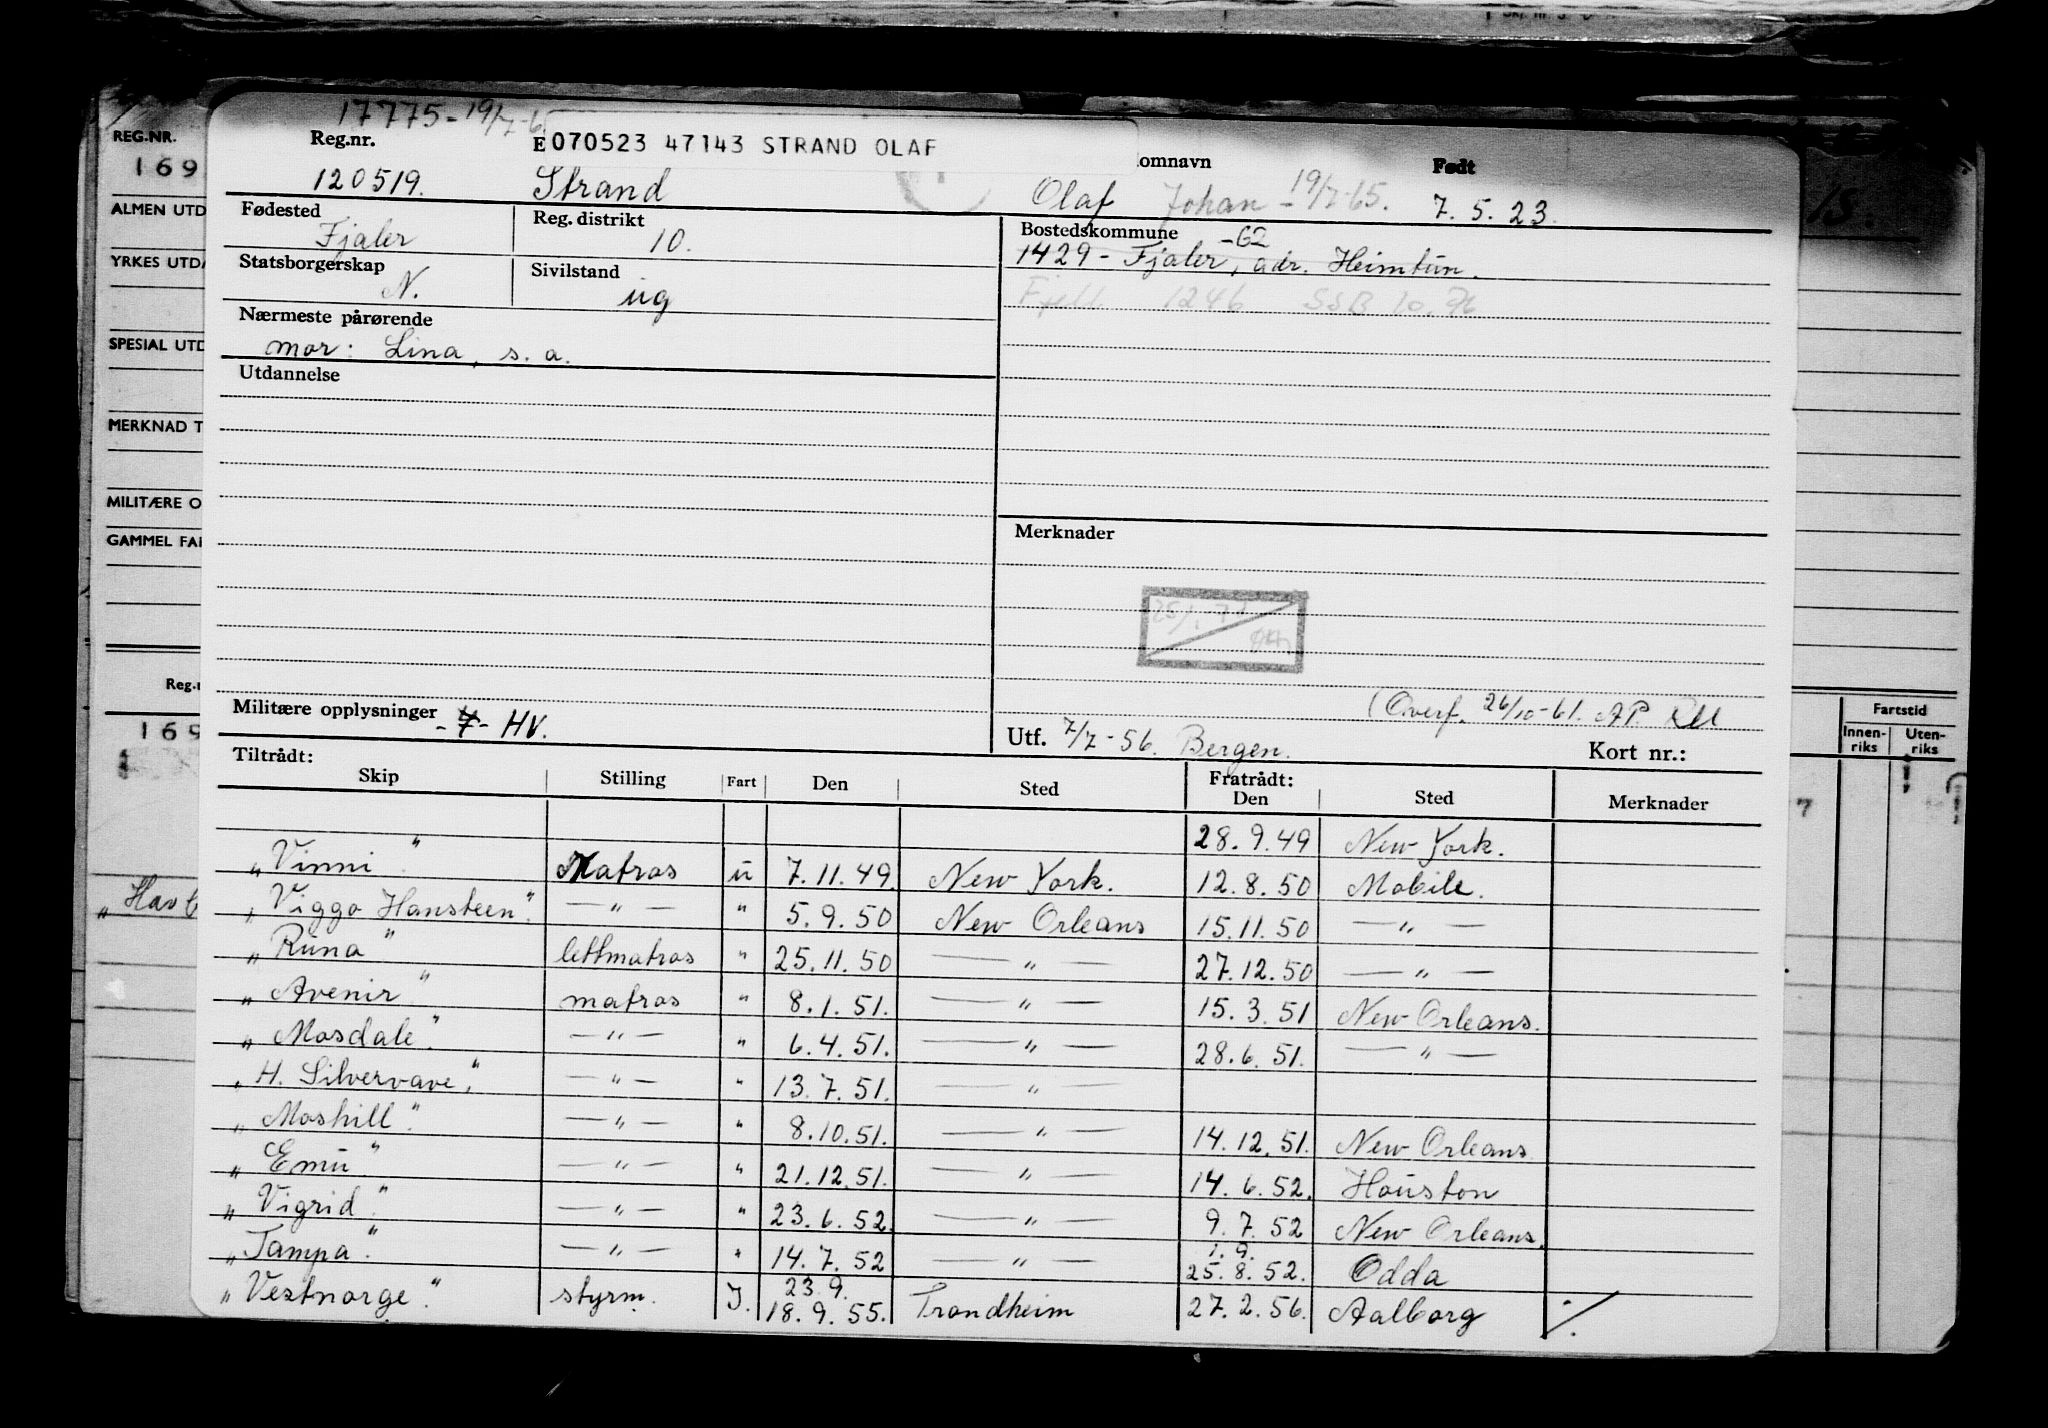 17775-19/7-6
REG.NR. Reg.nr. E 070523 47143 STRAND OLAF omnavn Født
169 120519. Strand Olaf Johan - 19/7-65. 7. 5. 23.
ALMEN UTD Fødested Reg. distrikt Bostedskommune
Fjaler 10. -62
1429 - Fjaler, adr. Heimtun.
YRKES UTDA Statsborgerskap Sivilstand
N. ug Fjell 1246 SSB 10.76
Nærmeste pårørende
SPESIAL UTD mor: Lina, s. a.
Utdannelse
MERKNAD T
MILITÆRE O
GAMMEL FAR Merknader
Reg.n
(Overf. 26/10-61. AP.
Militære opplysninger -7- HV. Utf. 7/7-56. Bergen. Kort nr.:
Fartstid
Innen-riks Uten-riks
169
Tiltrådt: Fratrådt:
Skip Stilling Fart Den Sted Den Sted Merknader
28. 9. 49 New York.
"Vinni" Matros u 7. 11. 49. New York. 12. 8. 50 Mobile.
"Viggo Hansteen". — " — " 5. 9. 50 New Orleans 15. 11. 50 — " —
"Runa" lettmatros " 25. 11. 50 — " — 27. 12. 50 — " —
"Avenir" matros " 8. 1. 51. — " — 15. 3. 51 New Orleans.
"Mosdale". — " — " 6. 4. 51. — " — 28. 6. 51. — " —
"H. Silvervave," — " — " 13. 7. 51. — "
"Moshill". — " — " 8. 10. 51. — " — 14. 12. 51. New Orleans
"Emu". — " — " 21. 12. 51. — " — 14. 6. 52. Houston
"Vigrid". — " — " 23. 6. 52. — " — 9. 7. 52 New Orleans.
1. 9.
"Tampa". — " — " 14. 7. 52 — " — 25. 8. 52. Odda
23. 9.
"Vestnorge". styrm. I. 18. 9. 55. Trondheim 27. 2. 56. Aalborg ./.